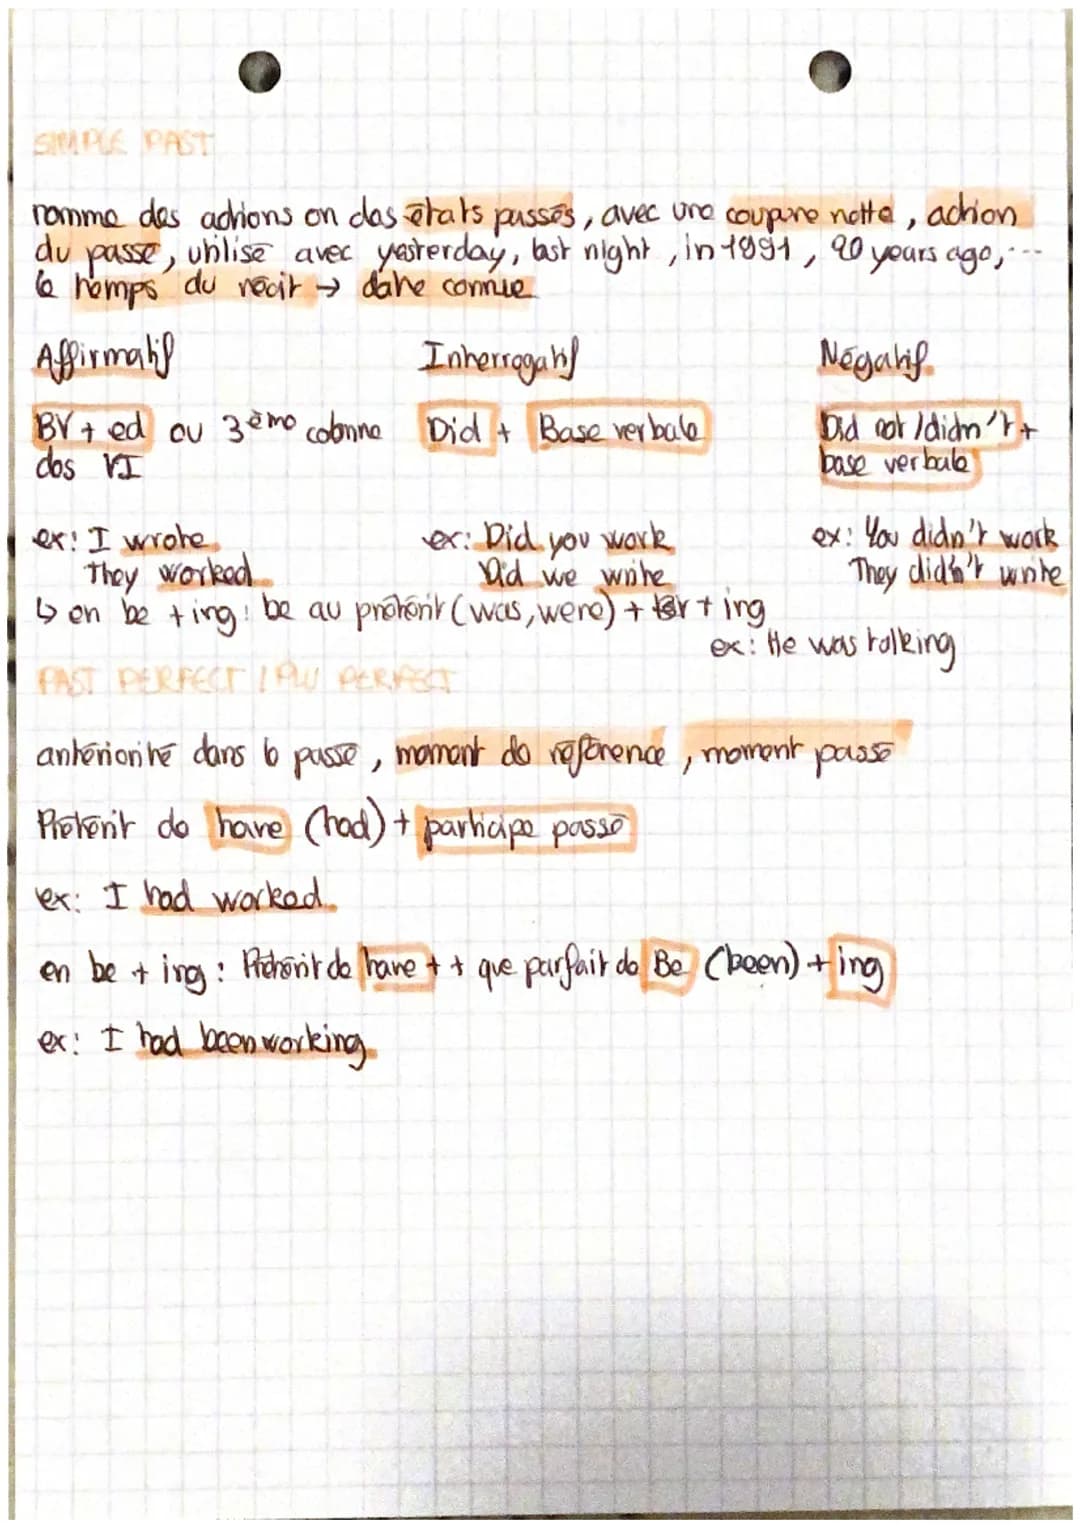 SIMPLE PAST
nomme des actions on des états passés, avec une coupure nette, action
du passé, utilisé avec yesterday, last night, in 1991, 20 years ago, ...
le temps du récit → date connue
Affirmatif Interrogatif Négatif
BV + ed ou 3ème colonne Did + Base verbale Did not / didn't +
des VI base verbale
ex: I wrote ex: Did you work ex: You didn't work
They worked Did we write They didn't write
↳ en be + ing: be au prétérit (was, were) + + ing
ex: He was talking
PAST PERFECT / PLU PERFECT
antériorité dans le passé, moment de référence, moment passé
Prétérit de have (had) + participe passé
ex: I had worked
en be + ing: Prétérit de have + + que parfait de Be (been) + ing
ex: I had been working